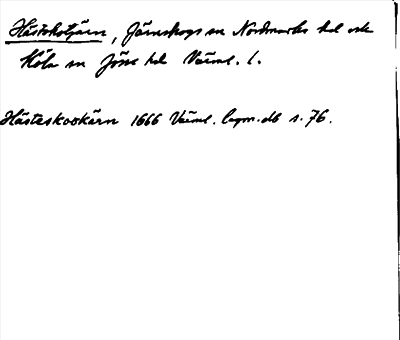 Hästskotjärn, Järnskogs sn Nordmarks hd och
Köla sn Jösse hd Värml. l.
Hästeskookärn 1666 Värml. lagm.db s. 76.